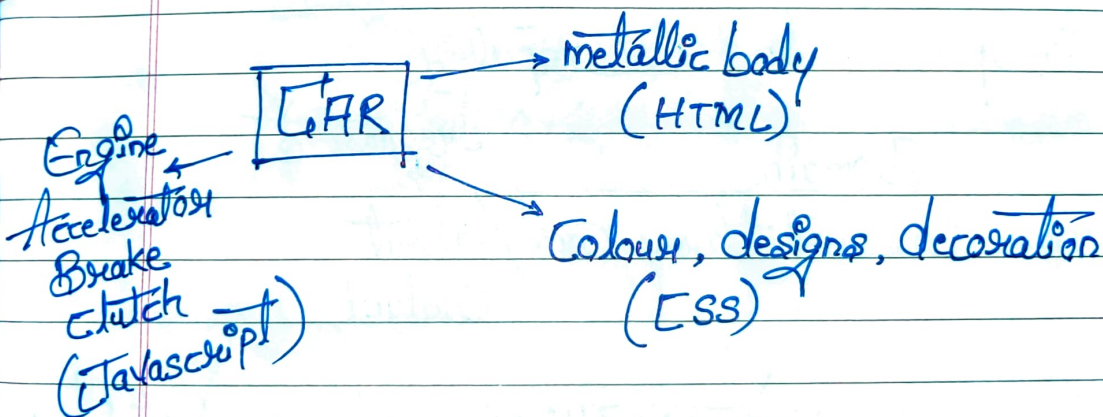 CAR
metallic body
(HTML)
Engine
Accelerator
Brake
clutch
(Javascript)
Colour, designs, decoration
(CSS)